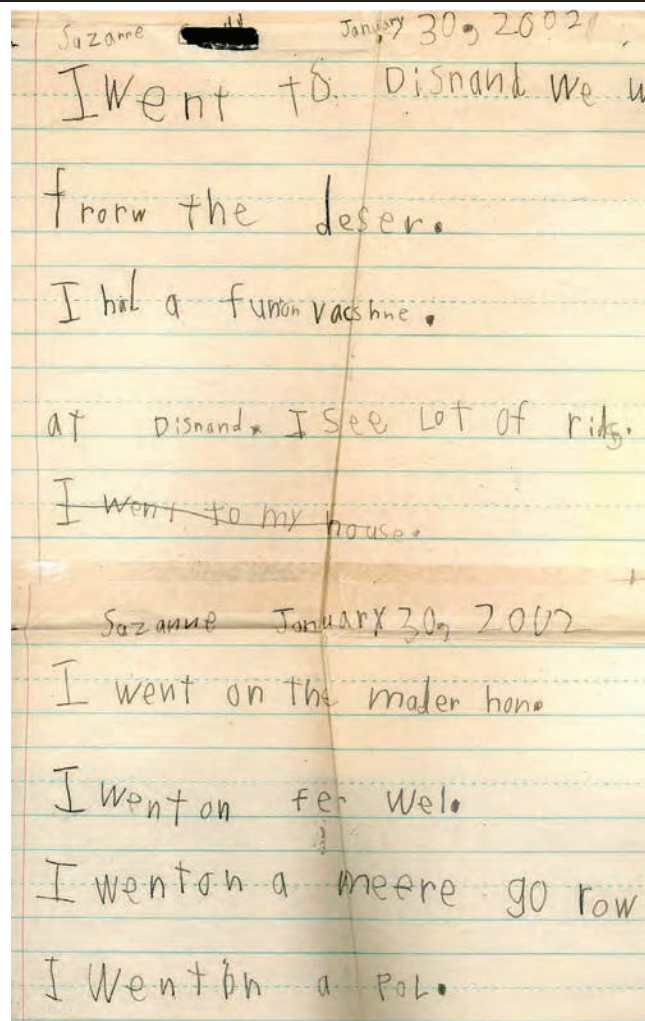 Suzanne January 30, 2002
I Went to Disnand We w
frorw the deser.
I had a funon vacshne.
at Disnand. I See Lot of rids.
I went to my house.
Suzanne January 30, 2002
I went on the mader hon.
I went on fer wel.
I went on a meere go row
I Went on a POL.